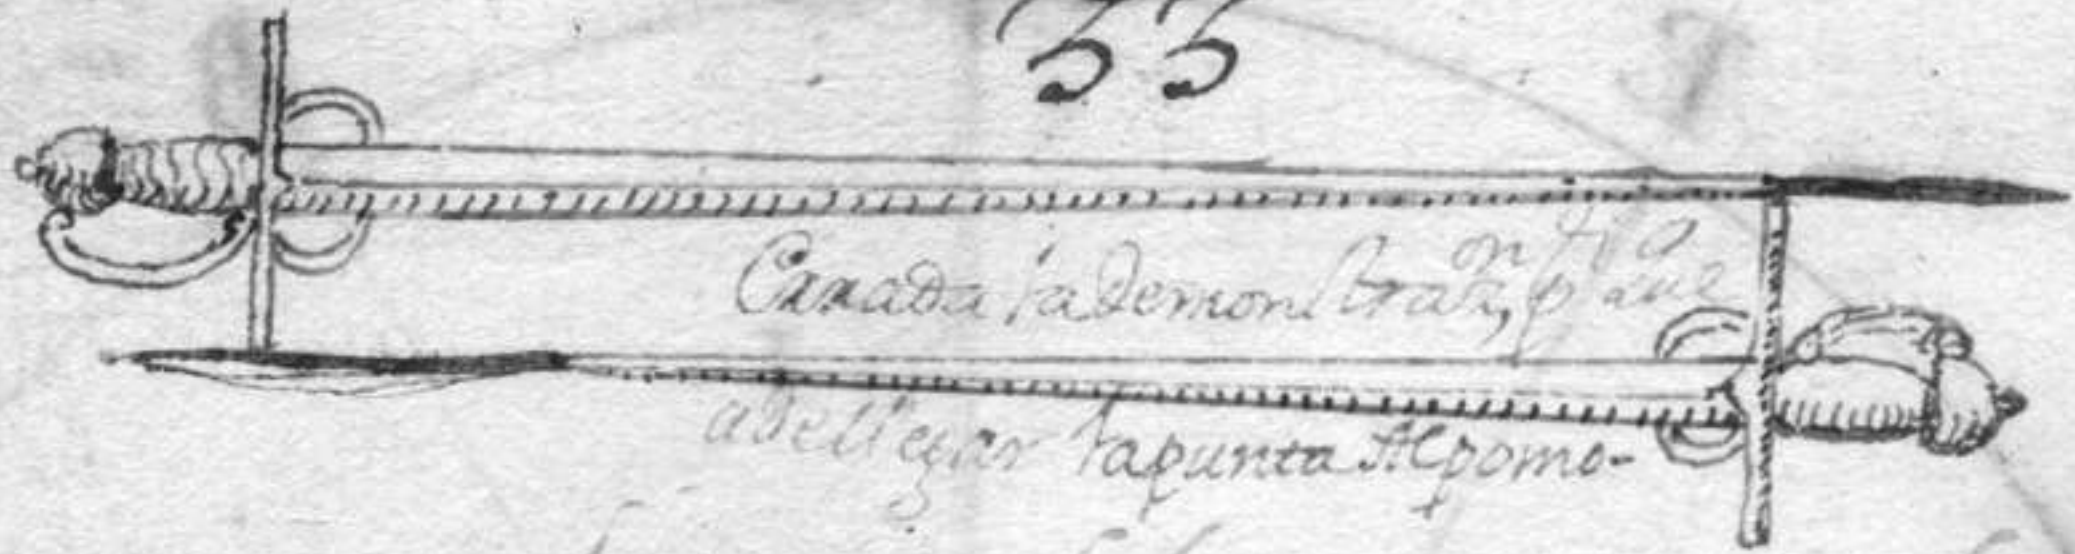 33
Errada la demonstraon, p que
a de llegar la punta Al pomo-